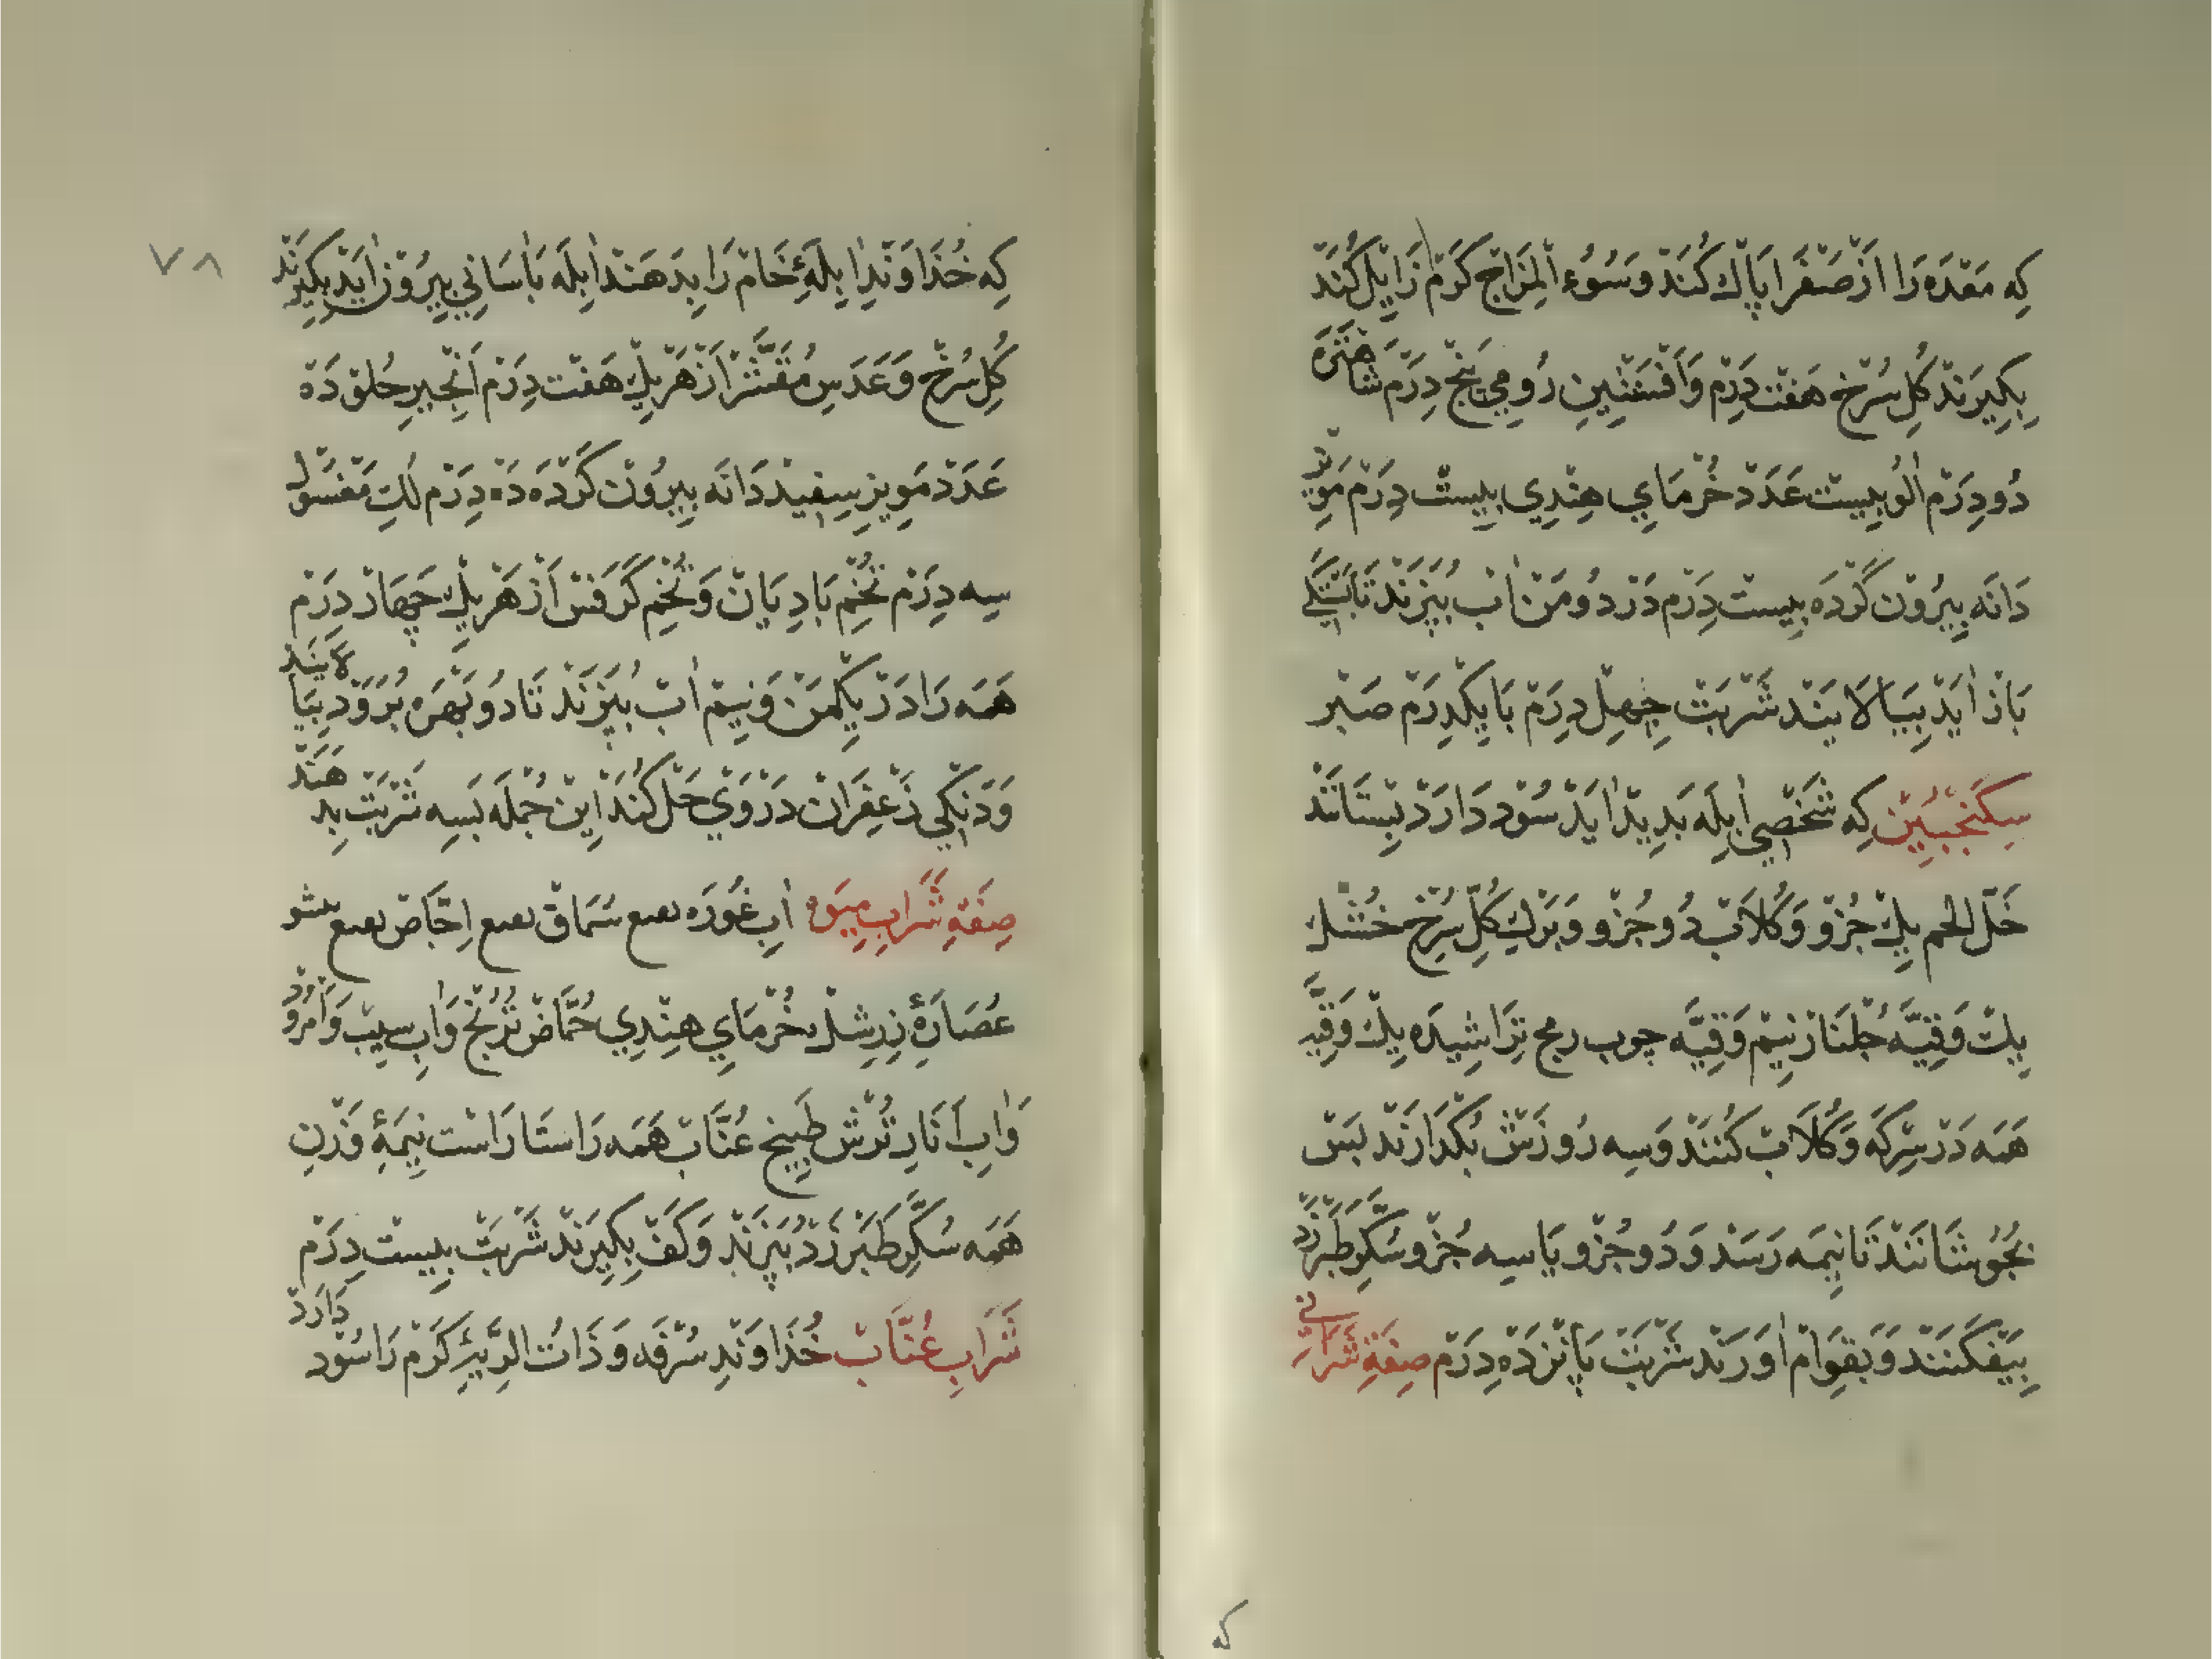 که معده را از صفرا پاك کند و سوء المزاج گرم زایل کند
بگیرند گل سرخ هفت درم و افسنتین رومی پنج درم شاهتره
دو درم الو بیست عدد خرمای هندی بیست درم مویز
دانه بیرون کرده بیست درم در دو من اب بپزند تا بسیکی
باز اید بپالایند شربت چهل درم با یکدرم صبر
سکنجبین که شخصی ابله بدید اید سود دارد بستانند
خل الخمر یك جزو و گلاب دو جزو و برك گل سرخ خشك
یك وقیه جلنار نیم وقیه چوب رمح تراشیده یك وقیه
همه در سرکه و گلاب کنند و سه روزش بگذارند بس
بجوشانند تا نیمه رسد و دو جزو یا سه جزو سکر طبرزد
بیفکنند و بقوام اورند شربت پانزده درم صفة شرابی
که
که خذاوند ابلهٔ خام را بدهند ابله باسانی بیرون اید بگیرند
گل سرخ و عدس مقشر از هر یك هفت درم انجیر حلق ده
عدد مویز سفید دانه بیرون کرده ده درم لك مغسول
سه درم تخم بادیان و تخم کرفس از هر یك چهار درم
همه را در یکمن و نیم اب بپزند تا دو بهره برود بپالایند
و دنگی زعفران در وی حل کند این جمله بسه شربت بدهند
صفة شراب میوه اب غوره نقیع سماق نقیع اجاص نقیع مشمش
عصارهٔ زرشك خرمای هندی حماض ترنج و اب سیب و امرود
و اب انار ترش طبیخ عناب همه راستا راست نیمهٔ وزن
همه سکر طبرزد بپزند و کف بگیرند شربت بیست درم
شراب عناب خذاوند سرفه و ذات الریهٔ گرم را سود دارد
٧٨